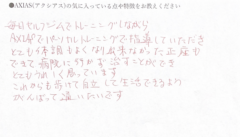 ●AXIAS(アクシアス)の気に入っている点や特徴をお教えください
毎日セルフジムでトレーニングしながら
AXIASでパーソナルトレーニングで指導していただき
とても体調もよくなり出来なかった正座が
できて病院に行かず過すことができ
とてもうれしく思っています
これからも歩けて自立して生活できるよう
がんばって通いたいです